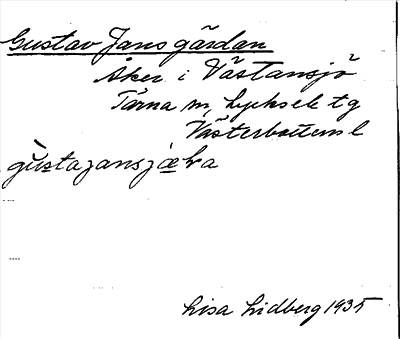 Gustav Jans gärdan
Åker i Västansjö
Tärna sn, Lycksele tg
Västerbottens l
gùstajansjæ̀ḷra
Lisa Lidberg 1935